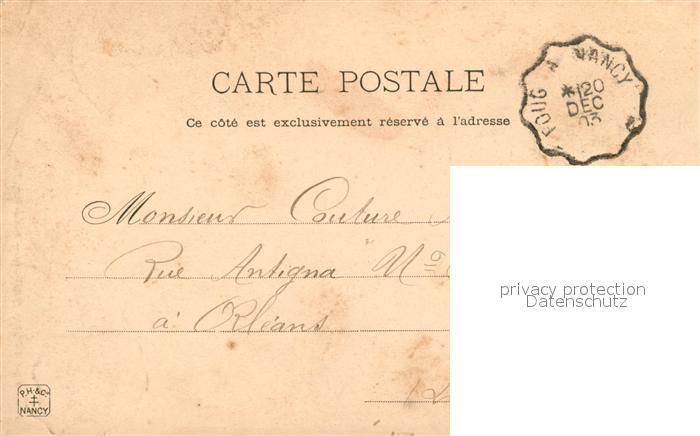 FOUG A NANCY
*120
DEC
03
CARTE POSTALE
Ce côté est exclusivement réservé à l'adresse
Monsieur Couture
Rue Antigna Nº
à Orléans
privacy protection
Datenschutz
P.H.&Cie
NANCY